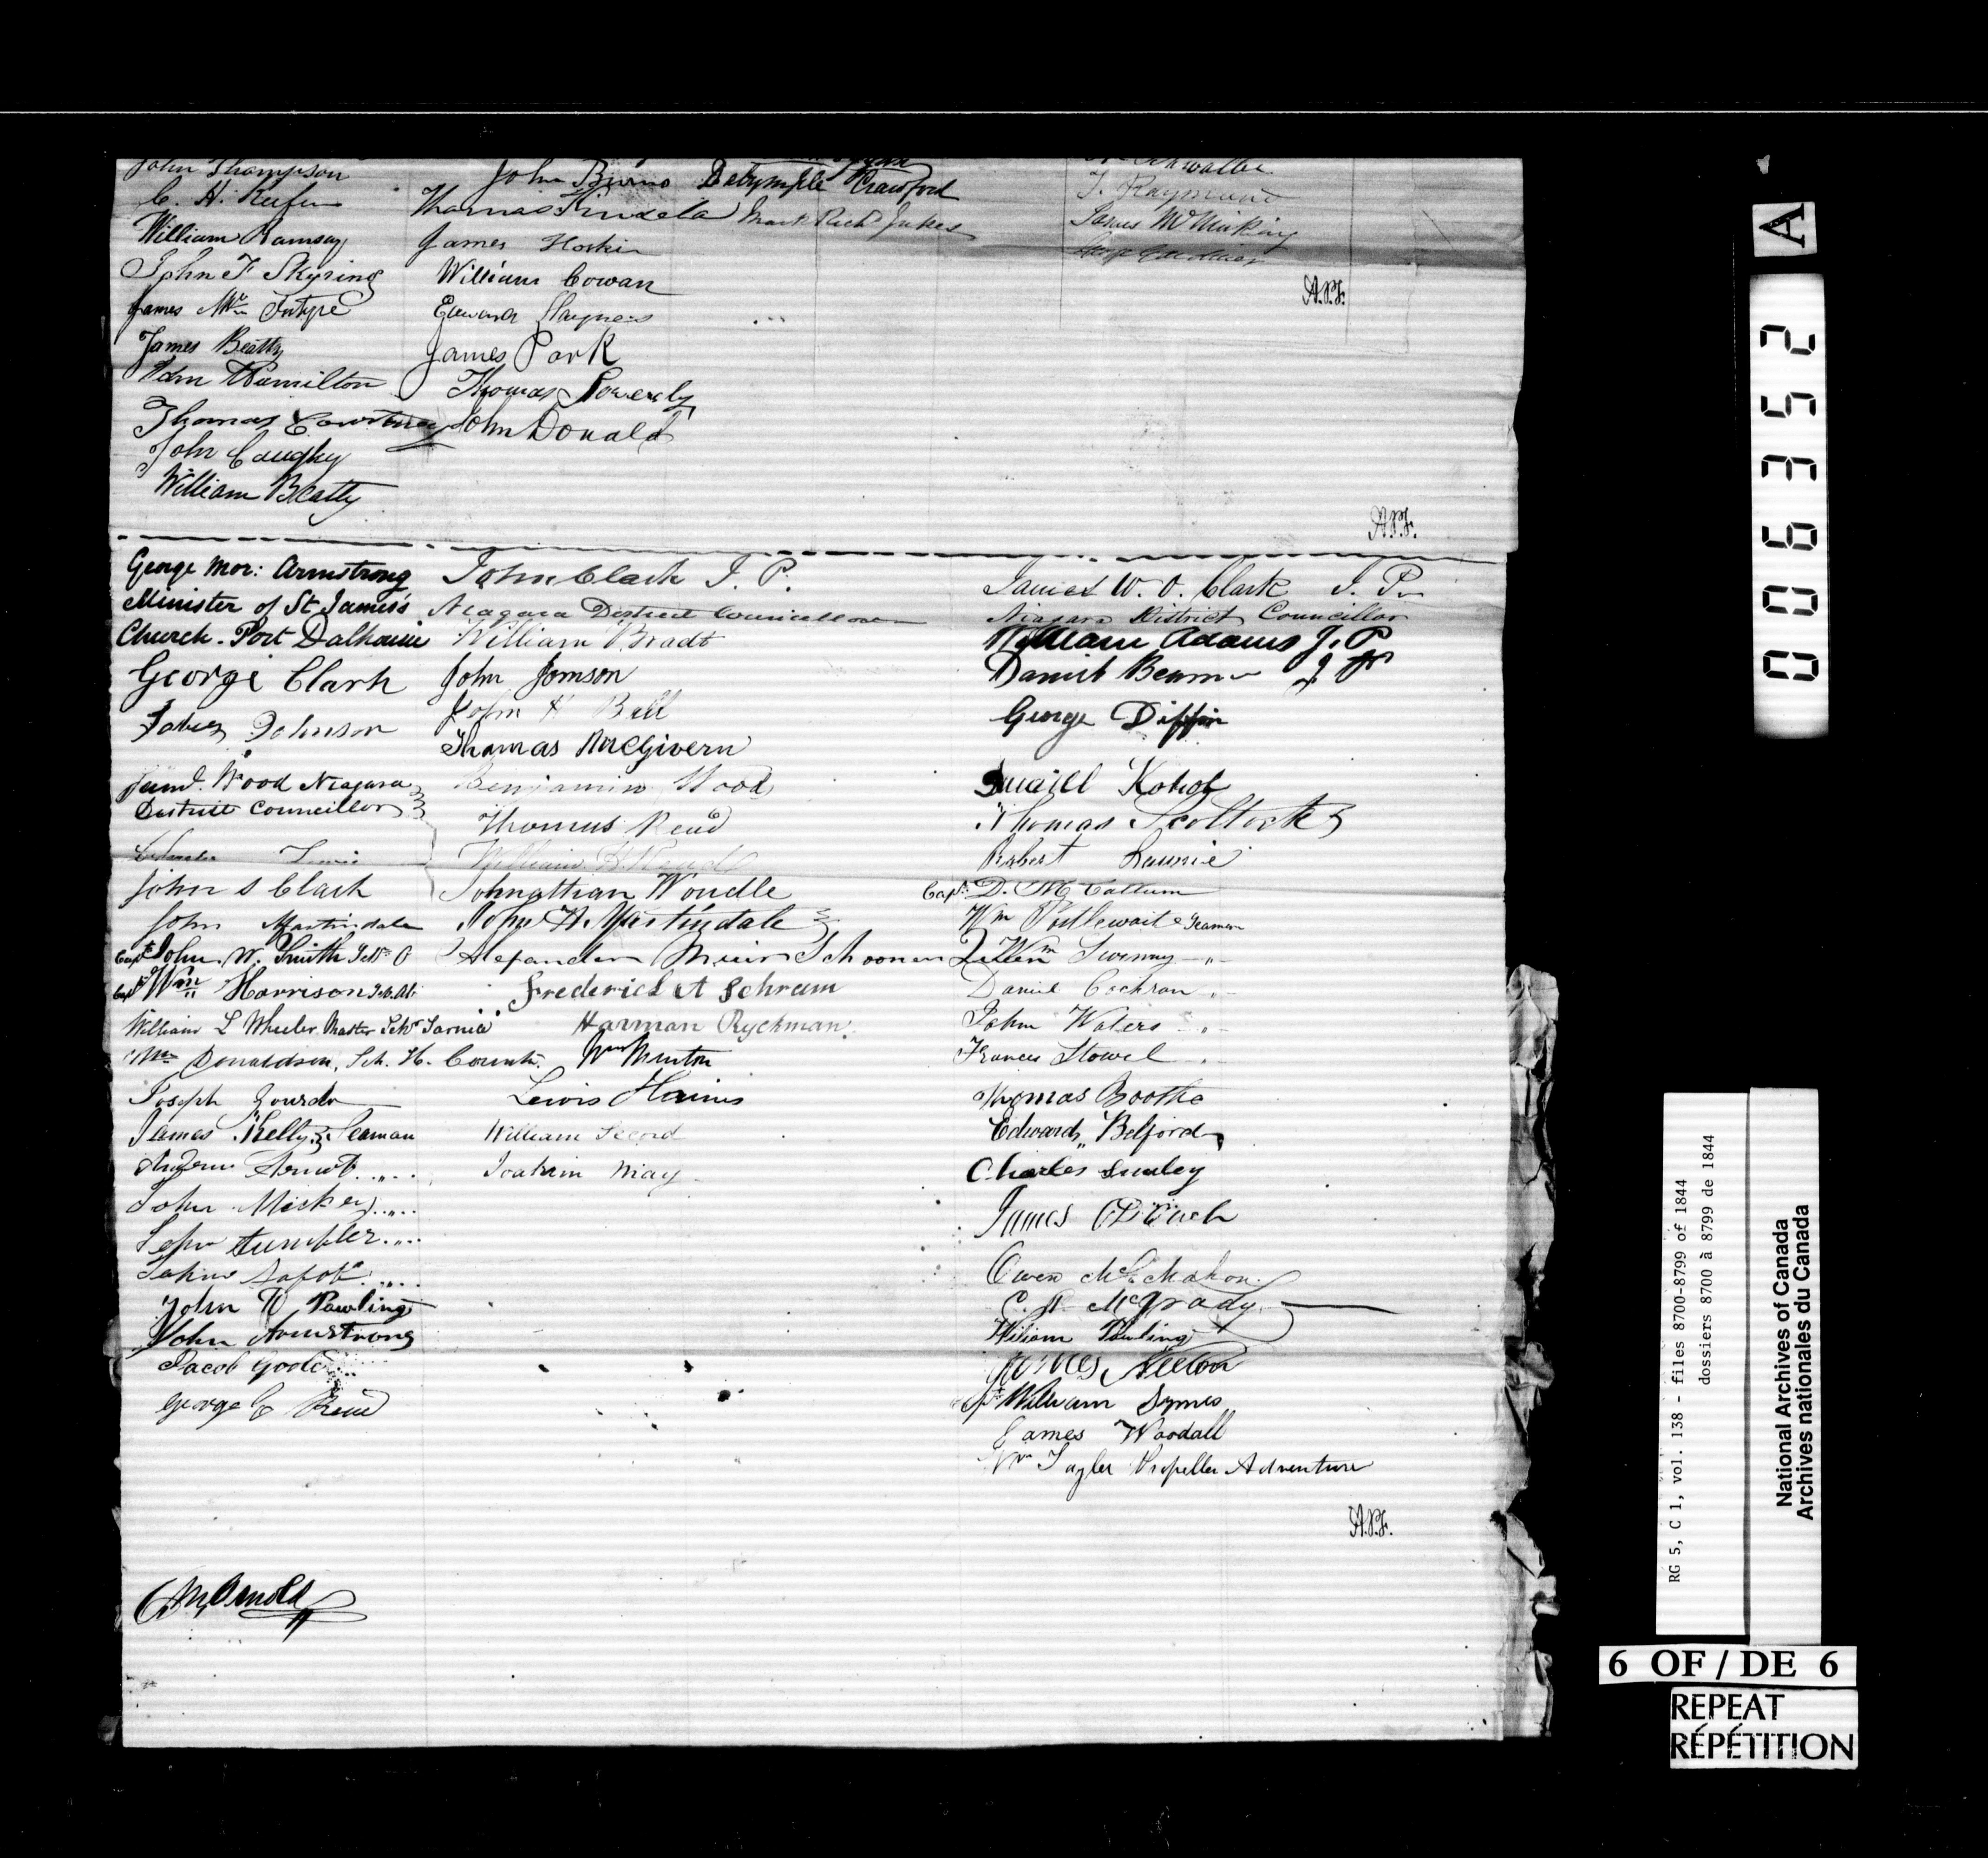 John Thompson
C. H. Keefer
William Ramsay
John F Skyring
James Mc Intyre
James Beatty
Adm Hamilton
Thomas Courtney
John Caughy
William Beatty
John Burns
Thomas Kindela
James Hoskin
William Cowan
Edward Haynes
James Park
Thomas
John Donald
Dalrymple Crawford
Mark Richd Jukes
T. Raymond
James McMicking
A.P.F.
A.P.F.
George Mor: Armstrong
Minister of St James's
Church. Port Dalhousie
George Clark
Johnson
Saml. Wood Niagara
District Councillor
Lewis
John S Clark
John Martindale
Capt John. W. Smith
Capt Wm Harrison
William L Wheeler Master Schr Sarnia
Wm Donaldson, Sch. H.
Joseph
James Kelly Seaman
Andrew
John Mickey
John
John
John W Pawling
John Armstrong
Jacob Goole
George C Read
CMArnold
John Clark J. P.
Niagara District Councillor
William Bradt
John Jomson
John H Ball
Thomas McGivern
Benjamin Wood
Thomas Read
William H. Read
Johnathan Woudle
John H. Martindale
Alexander Muir Schooner
Frederick A Schram
Harman Ryckman
Wm Minton
Lewis Hainis
William Secord
Joahim May
James W. O. Clark J. P.
Niagara District Councillor
William Adams J. P
Daniel Beamer J P
George Diffin
Thomas Scollock
Robert Laurie
Capt. D. McCallum
Wm Postlewaite Seaman
Wm Swenny -"-
Daniel Cochran -"-
John Waters -"-
Frances Stowel -"-
Thomas Boothe
Edward Belford
Charles
James
Owen McMahon.
C. McGrady
William Pawling
James Neelon
Capt William Symes
James Woodall
Wm Taylor Propeller Adventure
A.P.F.
A
006352
RG 5, C 1, vol. 138 - files 8700-8799 of 1844
dossiers 8700 à 8799 de 1844
National Archives of Canada
Archives nationales du Canada
6 OF / DE 6
REPEAT
RÉPÉTITION